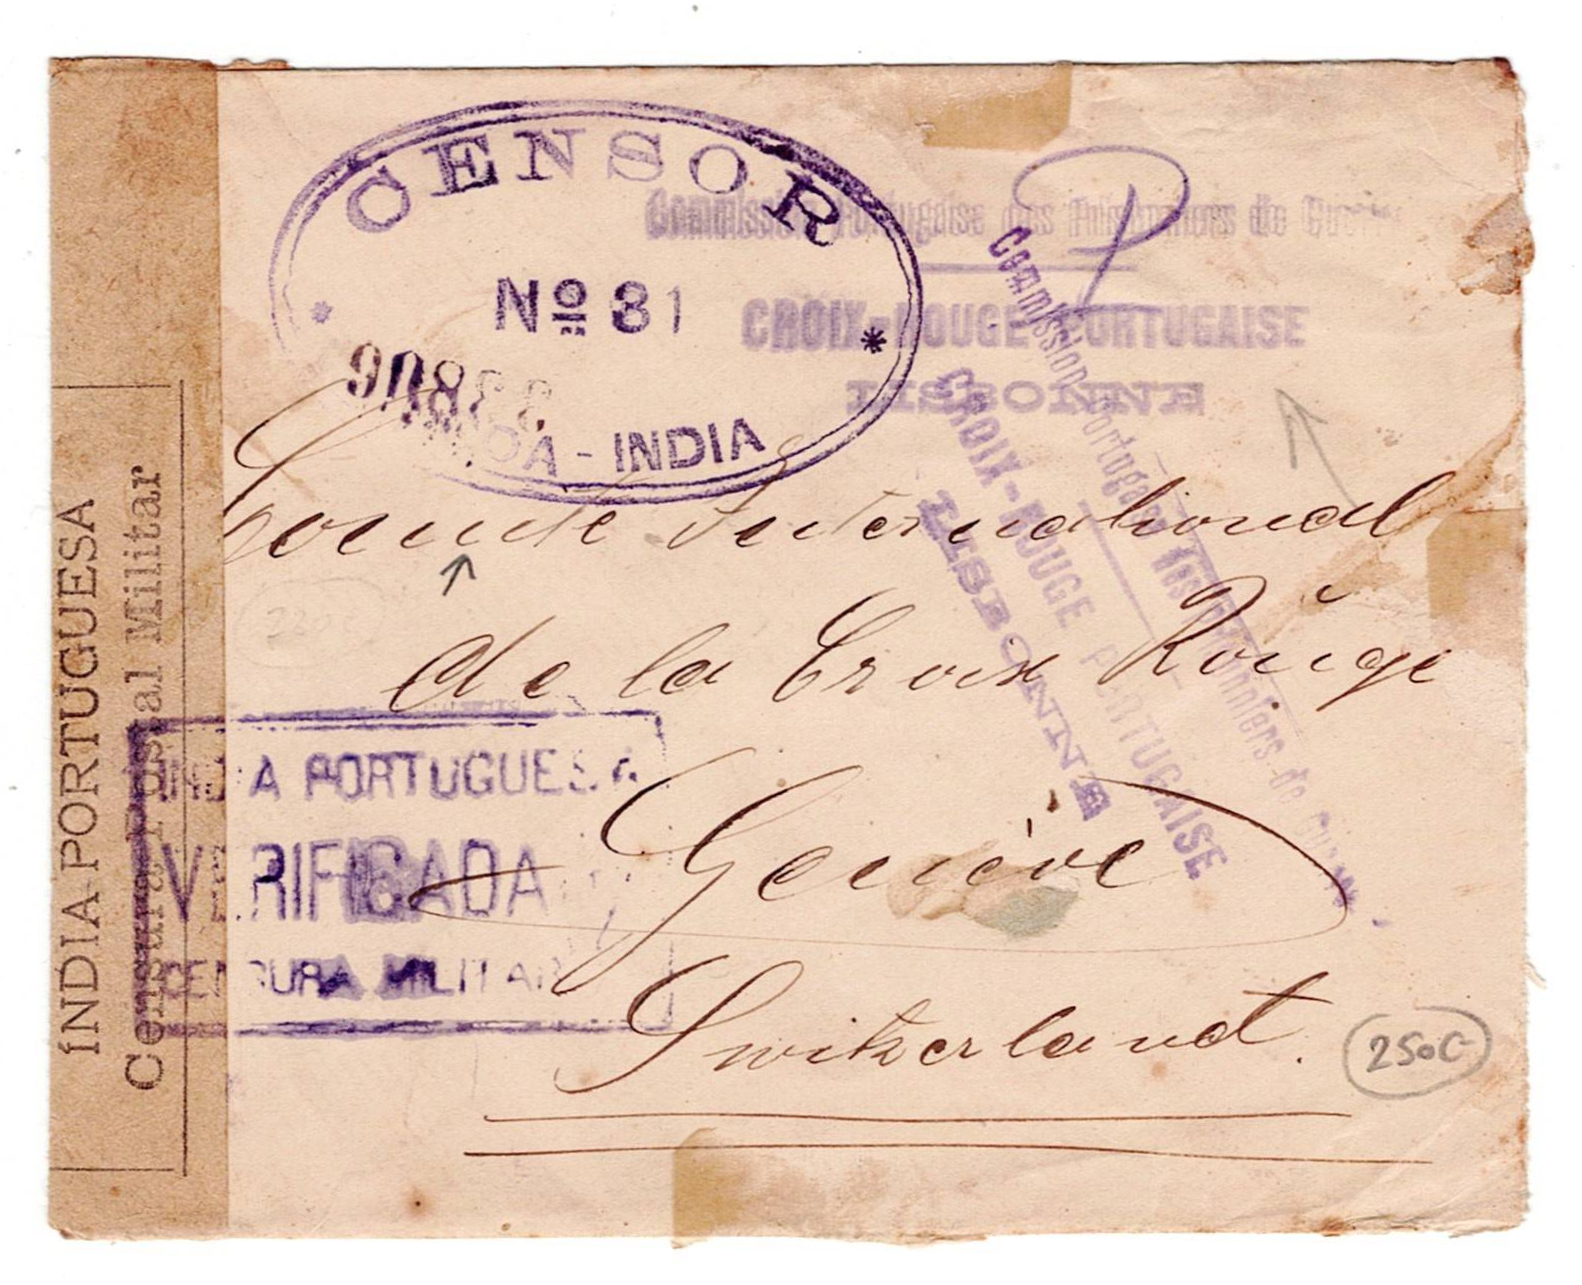 CENSOR
Nº 31
GOA - INDIA
Commission Portugaise des Prisonniers de Guerre
CROIX-ROUGE PORTUGAISE
LISBONNE
Commission Portugaise des Prisonniers de Guerre
CROIX-ROUGE PORTUGAISE
LISBONNE
P
Comité International
de la Croix Rouge
Genève
Switzerland.
250C
ÍNDIA PORTUGUESA
Censura Postal Militar
INDIA PORTUGUESA
VERIFICADA
CENSURA MILITAR